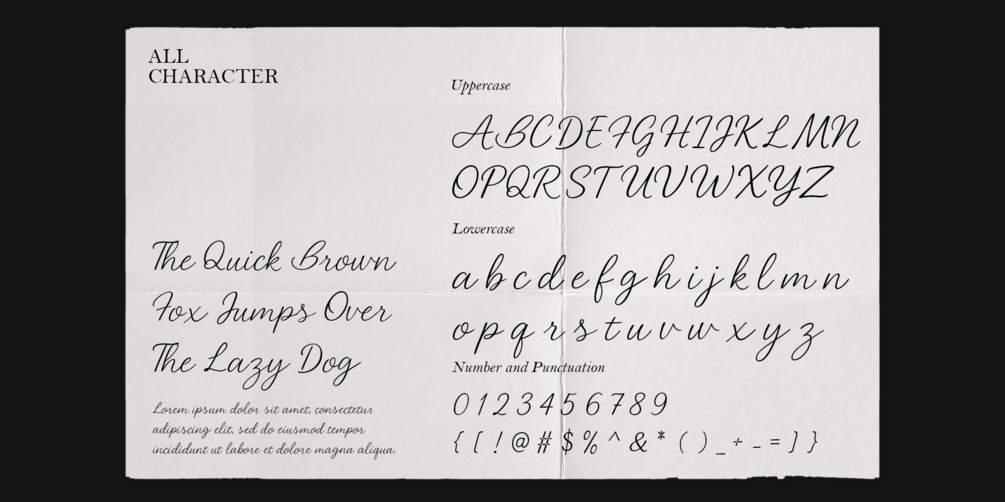 ALL
CHARACTER
The Quick Brown
Fox Jumps Over
The Lazy Dog
Lorem ipsum dolor sit amet, consectetur
adipiscing elit, sed do eiusmod tempor
incididunt ut labore et dolore magna aliqua.
Uppercase
ABCDEFGHIJKLMN
OPQRSTUVWXYZ
Lowercase
a b c d e f g h i j k l m n
o p q r s t u v w x y z
Number and Punctuation
0 1 2 3 4 5 6 7 8 9
{ [ ! @ # $ % ^ & * ( ) _ + - = ] }